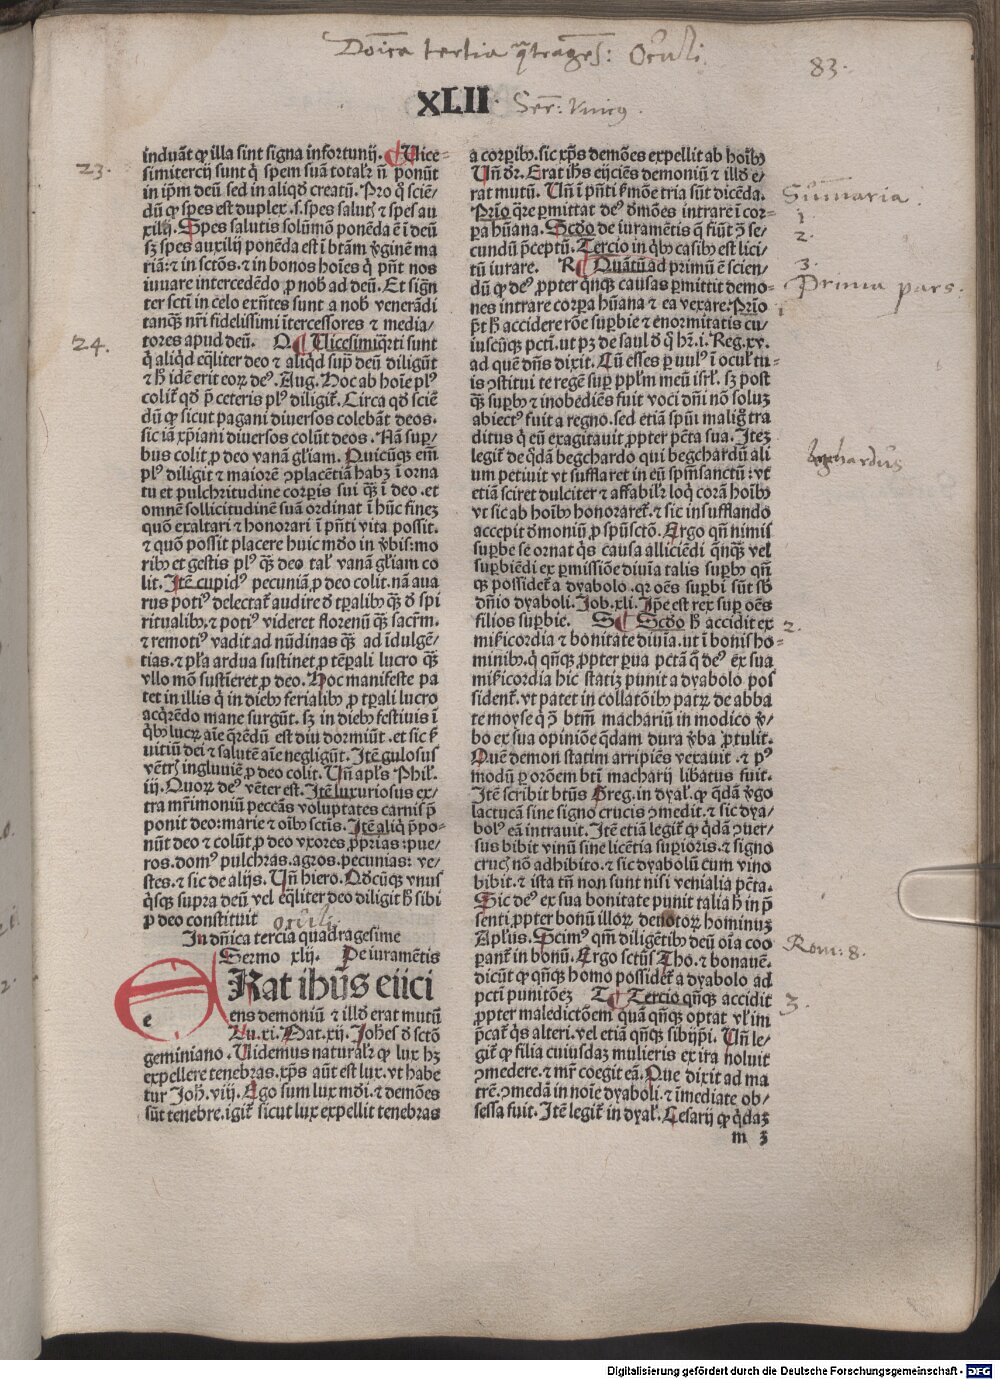 Doīca tertia q̄tragesʒ: Oculi.
83.
XLII
Serͫ: vnicꝰ.
induāt ꝙ illa sint signa infortunij. Uice-
simitercij sunt q̇ spem suā totalr̄ ñ ponūt
in ip̄m deū sed in aliqd̓ creatū. Pro q̊ sciē/
dū ꝙ spes est duplex .s. spes salutꝭ ⁊ spes au
xilij. Spes salutis solūmō ponēda ē ī deū
sʒ spes auxilij ponēda est ī btām ṽginē ma
riā: ⁊ in sctōs. ⁊ in bonos hoīes q̇ pn̄t nos
iuuare intercedēdo ꝓ nob̄ ad deū. Et sigñ
ter sctī in celo exn̄tes sunt a nob̄ venerādi
tanq̄ꝫ nr̄i fidelissimi ītercessores ⁊ media/
tores apud deū. Q Uicesimiq̄rti sunt
q̇ aliqd̓ eq̄liter deo ⁊ aliqd̓ sup̄ deū diligūt
⁊ h̄ idē erit eoꝝ deꝰ. Aug. Hoc ab hoīe plꝰ
colit᷑ qd̓ p̄ ceteris plꝰ diligit᷑. Circa qd̓ sciē
dū ꝙ sicut pagani diuersos colebāt deos.
sic iā xp̄iani diuersos colūt deos. Nā suꝑ/
bus colit ꝓ deo vanā gl̄iam. Quicūqꝫ em̄
plꝰ diligit ⁊ maiorē ꝯplacētiā habꝫ ī orna
tu et pulchritudine corꝑis sui q̄ꝫ ī deo. et
omnē sollicitudinē suā ordinat ī hūc fineꝫ
quō exaltari ⁊ honorari ī pn̄ti vita possit.
⁊ quō possit placere huic mūdo in v̓bis: mo
ribꝫ et gestis plꝰ q̄ꝫ deo tal̓ vanā gl̄iam co
lit. Itē cupidꝰ pecuniā ꝓ deo colit. nā aua
rus potiꝰ delectat᷑ audire d̓ tꝑalibꝫ q̄ꝫ d̓ spi
ritualibꝫ. ⁊ potiꝰ videret florenū q̄ꝫ sacrm̄.
⁊ remotiꝰ vadit ad nūdinas q̄ꝫ ad īdulgē/
tias. ⁊ pl̄a ardua sustinet ꝓ tēꝑali lucro q̄ꝫ
vllo mō sustieret ꝓ deo. Hoc manifeste pa
tet in illis q̇ in diebꝫ ferialibꝫ ꝓ tꝑali lucro
acq̇rēdo mane surgūt. sʒ in diebꝫ festiuis ī
q̇bꝫ lucꝝ aīe q̄rēdū est diu dormiūt. et sic ẜ
uitiū dei ⁊ salutē aīe negligūt. Itē gulosus
vētrꝭ ingluuiē ꝓ deo colit. Un̄ apl̄s Phil̓.
iij. Quoꝝ deꝰ vēter est. Itē luxuriosus ex/
tra mr̄imoniū peccās voluptates carnis p̄
ponit deo: marie ⁊ oībꝫ sctīs. Itē aliq̇ p̄po-
nūt deo ⁊ colūt ꝓ deo vxores ꝓprias: pue/
ros. domꝰ pulchras. agros. pecunias: ve/
stes. ⁊ sic de alijs. Un̄ hiero. Qd̓cūqꝫ vnus
q̇sqꝫ supra deū vel eq̄liter deo diligit h̄ sibi
ꝓ deo constituit
oculi
In dn̄ica tercia quadragesime
Sermo xlij. De iuramētis
ERat ih̄us eijci
e
ens demoniū ⁊ illd̓ erat mutū
Lu. xi. Mat. xij. Joh̄es d̓ sctō
geminiano. Uidemus naturalr̄ ꝙ lux hꝫ
expellere tenebras. xp̄s aūt est lux. vt habe
tur Joh̄. viij. Ego sum lux mūdi. ⁊ demōes
sūt tenebre. igit᷑ sicut lux expellit tenebras
a corꝑibꝫ. sic xp̄s demōes expellit ab hoībꝫ
Un̄ dr̄. Erat ih̄s eijciēs demoniū ⁊ illd̓ e/
rat mutū. Un̄ ī pn̄ti ẜmōe tria sūt dicēda.
Prīo q̄re ꝑmittat deꝰ dm̄ōes intrare ī cor-
ꝑa hūana. Scd̓o de iuramētis q̄ fiūt ꝯ̄ se/
cundū p̄ceptū. Tercio in q̇bꝫ casibꝫ est lici/
tū iurare. R Quātū ad primū ē scien/
dū ꝙ deꝰ ꝓpter qn̄qꝫ causas ꝑmittit demo-
nes intrare corꝑa hūana ⁊ ea vexare. Prīo
pōt h̄ accidere rōe suꝑbie ⁊ enormitatis cu/
iuscūqꝫ pctī. ut pʒ de saul d̓ q̊ hr̄. i. Reg. xv.
ad quē dn̄s dixit. Cū esses ꝑuulꝰ ī ocul̓ tu-
is ꝯstitui te regē suꝑ ppl̄m meū isrl̓. sʒ post
q̄ꝫ suꝑbꝰ ⁊ inobediēs fuit voci dn̄i nō soluꝫ
abiectꝰ fuit a regno. sed etiā spūi malig̊ tra
ditus q̇ eū exagitauit ꝓpter pctā sua. Iteꝫ
legit᷑ de q̊dā begchardo qui begchardū ali
um petiuit vt sufflaret in eū spm̄ sanctū: vt
etiā sciret dulciter ⁊ affabilr̄ loq̇ corā hoībꝫ
vt sic ab hoībꝫ honoraret᷑. ⁊ sic insufflando
accepit dm̄oniū ꝓ spūsctō. Ergo qn̄ nimis
suꝑbe se ornat q̇s causa alliciēdi qn̄qꝫ vel
suꝑbiēdi ex ꝑmissiōe diuīa talis suꝑbꝰ qn̄
qꝫ possidet᷑ a dyabolo. qꝛ oēs suꝑbi sūt sb̄
dn̄io dyaboli. Job. xli. Ip̄e est rex suꝑ oēs
filios suꝑbie. S Scd̓o h̄ accidit ex
mīẜicordia ⁊ bonitate diuīa. ut ī bonis ho-
minibꝫ. q̇ qn̄qꝫ ꝓpter ꝑua pctā q̄ deꝰ ex sua
mīẜicordia hic statiꝫ punit a dyabolo pos
sident᷑. vt patet in collatōibꝫ patꝝ de abba
te moyse q̇ ꝯ̄ btm̄ machariū in modico v̓/
bo ex sua opiniōe q̄dam dura v̓ba ꝓtulit.
Quē demon statim arripiēs vexauit. ⁊ pꝰ
modū ꝑ orōem btī macharij libatus fuit.
Itē scribit btūs Greg. in dyal̓. ꝙ q̄dā v̓go
lactucā sine signo crucis ꝯmedit. ⁊ sic dya/
bolꝰ eā intrauit. Itē etiā legit᷑ ꝙ q̇dā ꝯuer/
sus bibit vinū sine licētia suꝑioris. ⁊ signo
crucꝭ nō adhibito. ⁊ sic dyabolū cum vino
bibit. ⁊ ista tn̄ non sunt nisi venialia pctā.
Sic deꝰ ex sua bonitate punit talia h̄ in p̄
senti ꝓpter bonū illoꝝ deuotoꝝ hominuꝫ
Apl̄us. Scimꝰ qm̄ diligētibꝫ deū oīa coo
ꝑant᷑ in bonū. Ergo sctūs Tho. ⁊ bonauē.
dicūt ꝙ qn̄qꝫ homo possidet᷑ a dyabolo ad
pctī punitōeꝫ T Tercio qn̄qꝫ accidit
ꝓpter maledictōem quā qn̄qꝫ optat vl̓ im
p̄cat᷑ q̇s alteri. vel etiā qn̄qꝫ sibijpi. Un̄ le/
git᷑ ꝙ filia cuiusdaꝫ mulieris ex ira noluit
ꝯmedere. ⁊ mr̄ coegit eā. Que dixit ad ma
trē. ꝯmedā in noīe dyaboli. ⁊ īmediate ob/
sessa fuit. Itē legit᷑ in dyal̓. Cesarij ꝙ q̇daꝫ
m 3
23.
24.
Sum̄aria.
1
2.
3.
Prima pars.
1
beghardus
2.
Rom: 8.
3.
Digitalisierung gefördert durch die Deutsche Forschungsgemeinschaft - DFG